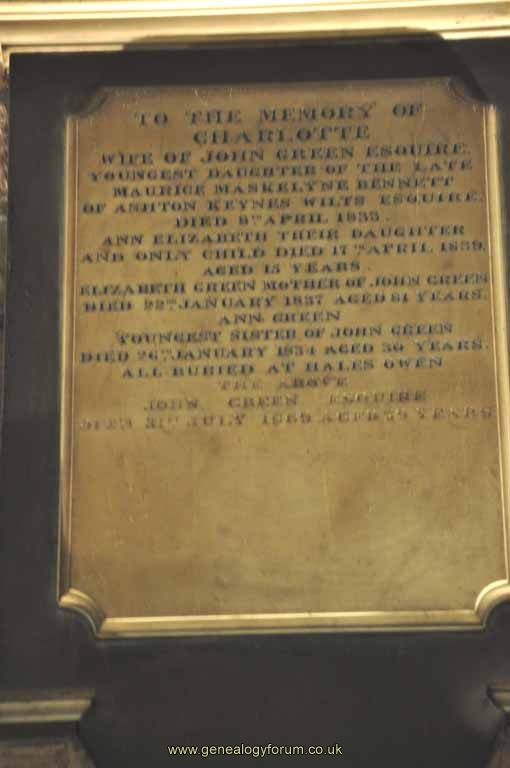 TO THE MEMORY OF
CHARLOTTE
WIFE OF JOHN GREEN ESQUIRE.
YOUNGEST DAUGHTER OF THE LATE
MAURICE MASKELYNE BENNETT
OF ASHTON KEYNES WILTS ESQUIRE.
DIED 8TH APRIL 1833.
ANN ELIZABETH THEIR DAUGHTER
AND ONLY CHILD DIED 17TH APRIL 1839.
AGED 15 YEARS.
ELIZABETH GREEN MOTHER OF JOHN GREEN
DIED 22ND JANUARY 1837 AGED 81 YEARS.
ANN GREEN
YOUNGEST SISTER OF JOHN GREEN
DIED 26TH JANUARY 1834 AGED 30 YEARS.
ALL BURIED AT HALES OWEN
THE ABOVE
JOHN GREEN ESQUIRE
DIED JULY 1869 AGED 79 YEARS
www.genealogyforum.co.uk